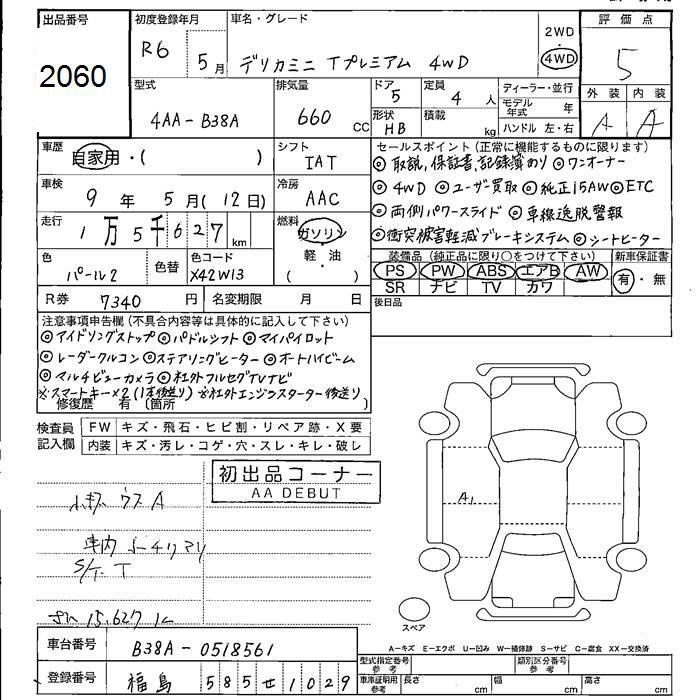 出品番号
2060
初度登録年月
R6 5月
車名・グレード
デリカミニ Tプレミアム 4WD
2WD
・
4WD
評価点
5
外装 内装
A A
型式
4AA-B38A
排気量
660 CC
ドア
5
形状
HB
定員
4 人
積載
kg
ディーラー・並行
モデル年式 年
ハンドル 左・右
車歴
自家用・( )
シフト
IAT
車検
9年 5月(12日)
冷房
AAC
走行
1万5千627km
燃料
ガソリン
・
軽油
( )
色
パール2
色替
色コード
X42W13
R券 7340円
名変期限 月 日
セールスポイント(正常に機能するものに限ります)
◎取説,保証書,記録簿あり ◎ワンオーナー
◎4WD ◎ユーザー買取 ◎純正15AW◎ETC
◎両側パワースライド ◎車線逸脱警報
◎衝突被害軽減ブレーキシステム ◎シートヒーター
装備品(純正品に限り○をつけて下さい)
PS PW ABS エアB AW
SR ナビ TV カワ
新車保証書
有・無
後日品
注意事項申告欄(不具合内容等は具体的に記入して下さい)
◎アイドリングストップ ◎パドルシフト ◎マイパイロット
◎レーダークルコン ◎ステアリングヒーター ◎オートハイビーム
◎マルチビューカメラ ◎社外フルセグTVナビ
※スマートキー×2(1本後送り) ※社外エンジンスターター後送り
修復歴 有(箇所 )
検査員
記入欄
FW キズ・飛石・ヒビ割・リペア跡・X要
内装 キズ・汚レ・コゲ・穴・スレ・キレ・破レ
初出品コーナー
AA DEBUT
小キズ ウス A
車内
S/T T
15,627
A1
スペア
車台番号 B38A-0518561
登録番号 福島 585せ1029
A-キズ E-エクボ U-凹み W-補修跡 S-サビ C-腐食 XX-交換済
型式指定番号
参考
類別区分番号
参考
車庫証明用
参考
長さ cm
幅 cm
高さ cm